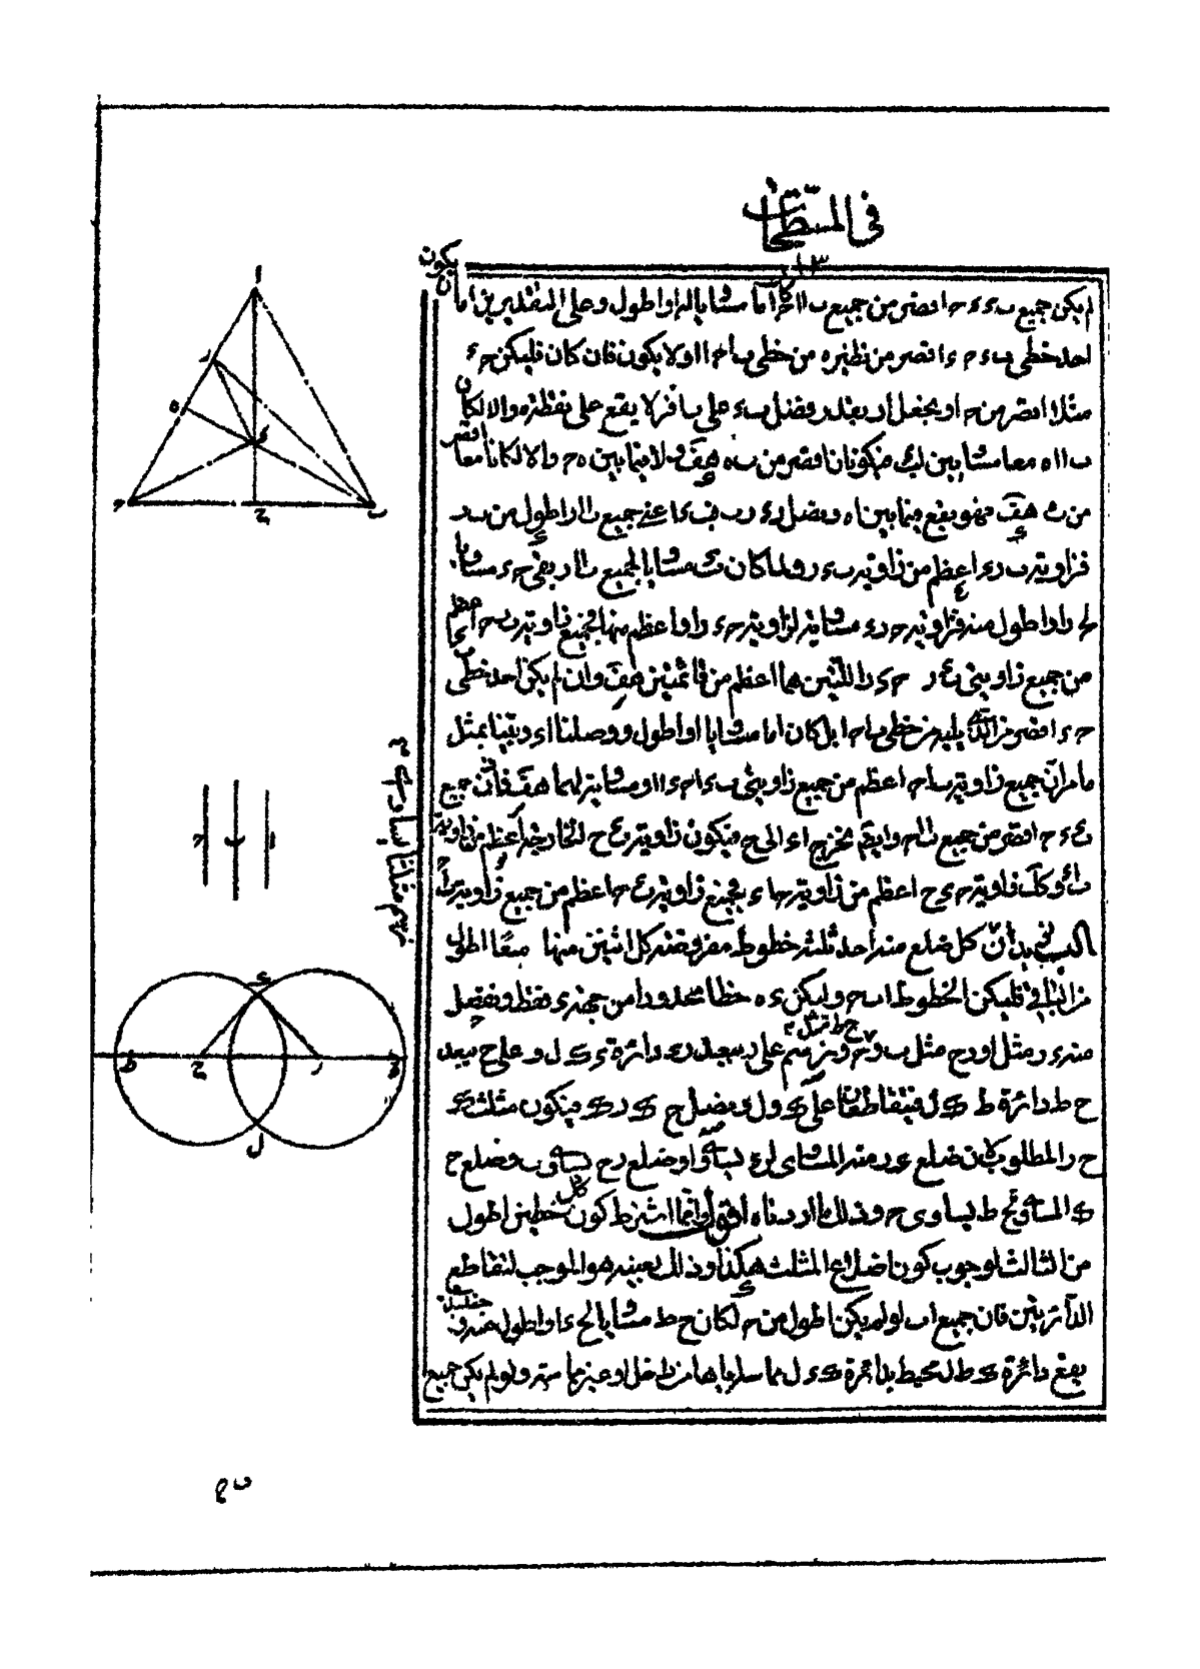 في المسطحات
يكون
لم يكن جميع ب ء ء ح اقصر من جميع ب ا ا ح لكان اما مساويا له او اطول وعلى التقديرين اما ان
احد خطى ب ء ح ء اقصر من نظيره من خطى ب ا ح ا اولا يكون فان كان فليكن ح ء
مثلا اقصر من ح ا ونجعل ا ر بقدر فضل ب ء على ب ا فر لا يقع على نقطة ه والا لكان
ب ا ا ه معا مساويين لب ء فيكونان اقصر من ب ه هف ولا فيما بين ه ح والا لكانا معا اقصر
من ب ء هف فهو يقع فيما بين ا ه ونصل ر ء ر ب فب ء اعنى جميع ب ا ا ر اطول من ب ر
فزاوية ب ر ء اعظم من زاوية ب ء ر ولما كان ب ء مساويا لجميع ب ا ا ر بقى ح ء مساويا
لح ر او اطول منه فزاوية ح ر ء مساوية لزاوية ح ء ر او اعظم منها فجميع زاوية ب ر ح اعظم
من جميع زاويتى ب ء ر ح ء ر اللتين هما اعظم من قائمتين هف وان لم يكن احد خطى ب ء
ح ء اقصر من الذى يليه من خطى ب ا ح ا بل كان اما مساويا او اطول ووصلنا ا ء وبينا بمثل
ما مر ان جميع زاوية ب ا ح اعظم من جميع زاويتى ب ء ا ح ء ا او مساوية لهما هف فاذن جميع
ب ء ء ح اقصر من جميع ب ا ا ح وايضا نخرج ا ء الى ح فيكون زاوية ب ء ح الخارجة اعظم من زاوية
ب ا ء وكذلك زاوية ح ء ح اعظم من زاوية ح ا ء فجميع زاوية ب ء ح اعظم من جميع زاوية ب ا ح
كب نريد ان نرسم مثلثا يساوى
كل ضلع منه احد ثلثة خطوط مفروضة كل اثنين منها معا اطول
من الباقى فليكن الخطوط ا ب ح وليكن ء ه خطا محدودا من جهة ء فقط ونفصل
منه ء ر مثل ا و ر ح مثل ب و ح ط مثل ح ونرسم على ر ببعد ر ء دائرة ء ك ل وعلى ح ببعد
ح ط دائرة ط ك ل فيتقاطعان على ك و ل ونصل ح ك ر ك فيكون مثلث ك
ح ر المطلوب لان ضلع ك ر منه المساوى لر ء يساوى ا وضلع ر ح يساوى ب وضلع ح
ك المساوى لح ط يساوى ح وذلك ما اردناه اقول وانما اشترط كون كل خطين اطول
من الثالث لوجوب كون اضلاع المثلث هكذا وذلك بعينه هو الموجب لتقاطع
الدائرتين فان جميع ا ب لو لم يكن اطول من ح لكان ح ط مساويا لح ء او اطول منه و
يقع دائرة ك ط ل محيط بدائرة ك ء ل مماسة اياها من داخل او غير مماسة ولو لم يكن جميع
ا
ر
ه
ء
ح
ب
ا
ب
ح
ك
ط
ح
ر
ل